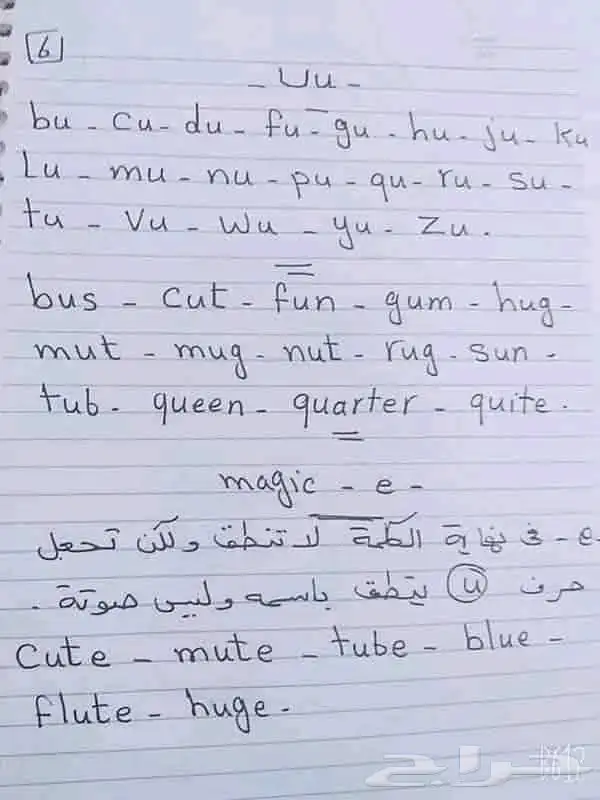 6
- Uu -
bu - cu - du - fu - gu - hu - ju - ku
Lu - mu - nu - pu - qu - ru - su -
tu - Vu - Wu - yu - Zu.
bus - cut - fun - gum - hug -
mut - mug - nut - rug - sun -
tub - queen - quarter - quite.
magic - e -
e - فى نهاية الكلمة لا تنطق ولكن تجعل
حرف u ينطق باسمه وليس صوتة .
Cute - mute - tube - blue -
flute - huge -
حراج